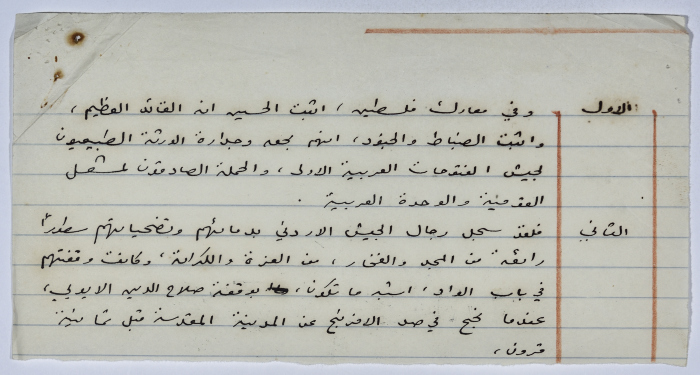 الاول
وفي معارك فلسطين، اثبت الحسين انه القائد العظيم،
واثبت الضباط والجنود، انهم بحق وجدارة الورثة الطبيعيون
لجيش الفتوحات العربية الاولى، والحملة الصادقون لمشعل
القومية والوحدة العربية.
الثاني
فلقد سجل رجال الجيش الاردني بدمائهم وتضحياتهم سطوراً
رائعة من المجد والفخار، من العزة والكرامة، وكانت وقفتهم
في باب الواد، اشبه ما تكون، بوقفة صلاح الدين الايوبي،
عندما نجح في صد الافرنج عن المدينة المقدسة قبل ثمانية
قرون،